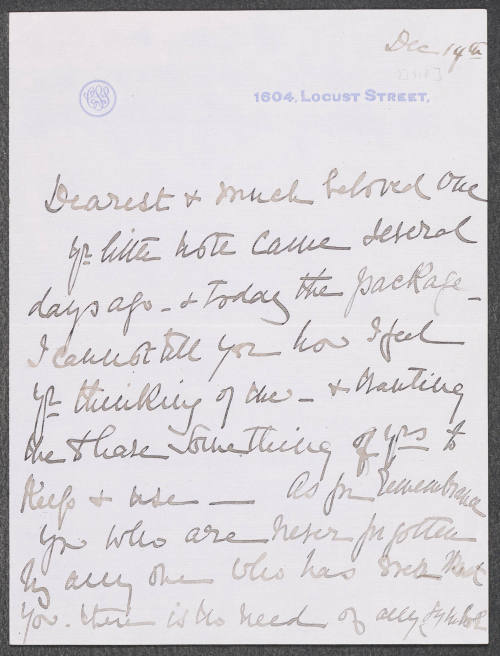 Dec 14th
1604, LOCUST STREET.
Dearest & much beloved one
yr little note came several
days ago - & today the package -
I cannot tell you how I feel
yr thinking of me - & wanting
me to have something of yrs to
keep & use — As for remembrance
yr who are never forgotten
by any one who has ever met
you. there is no need of any symbol